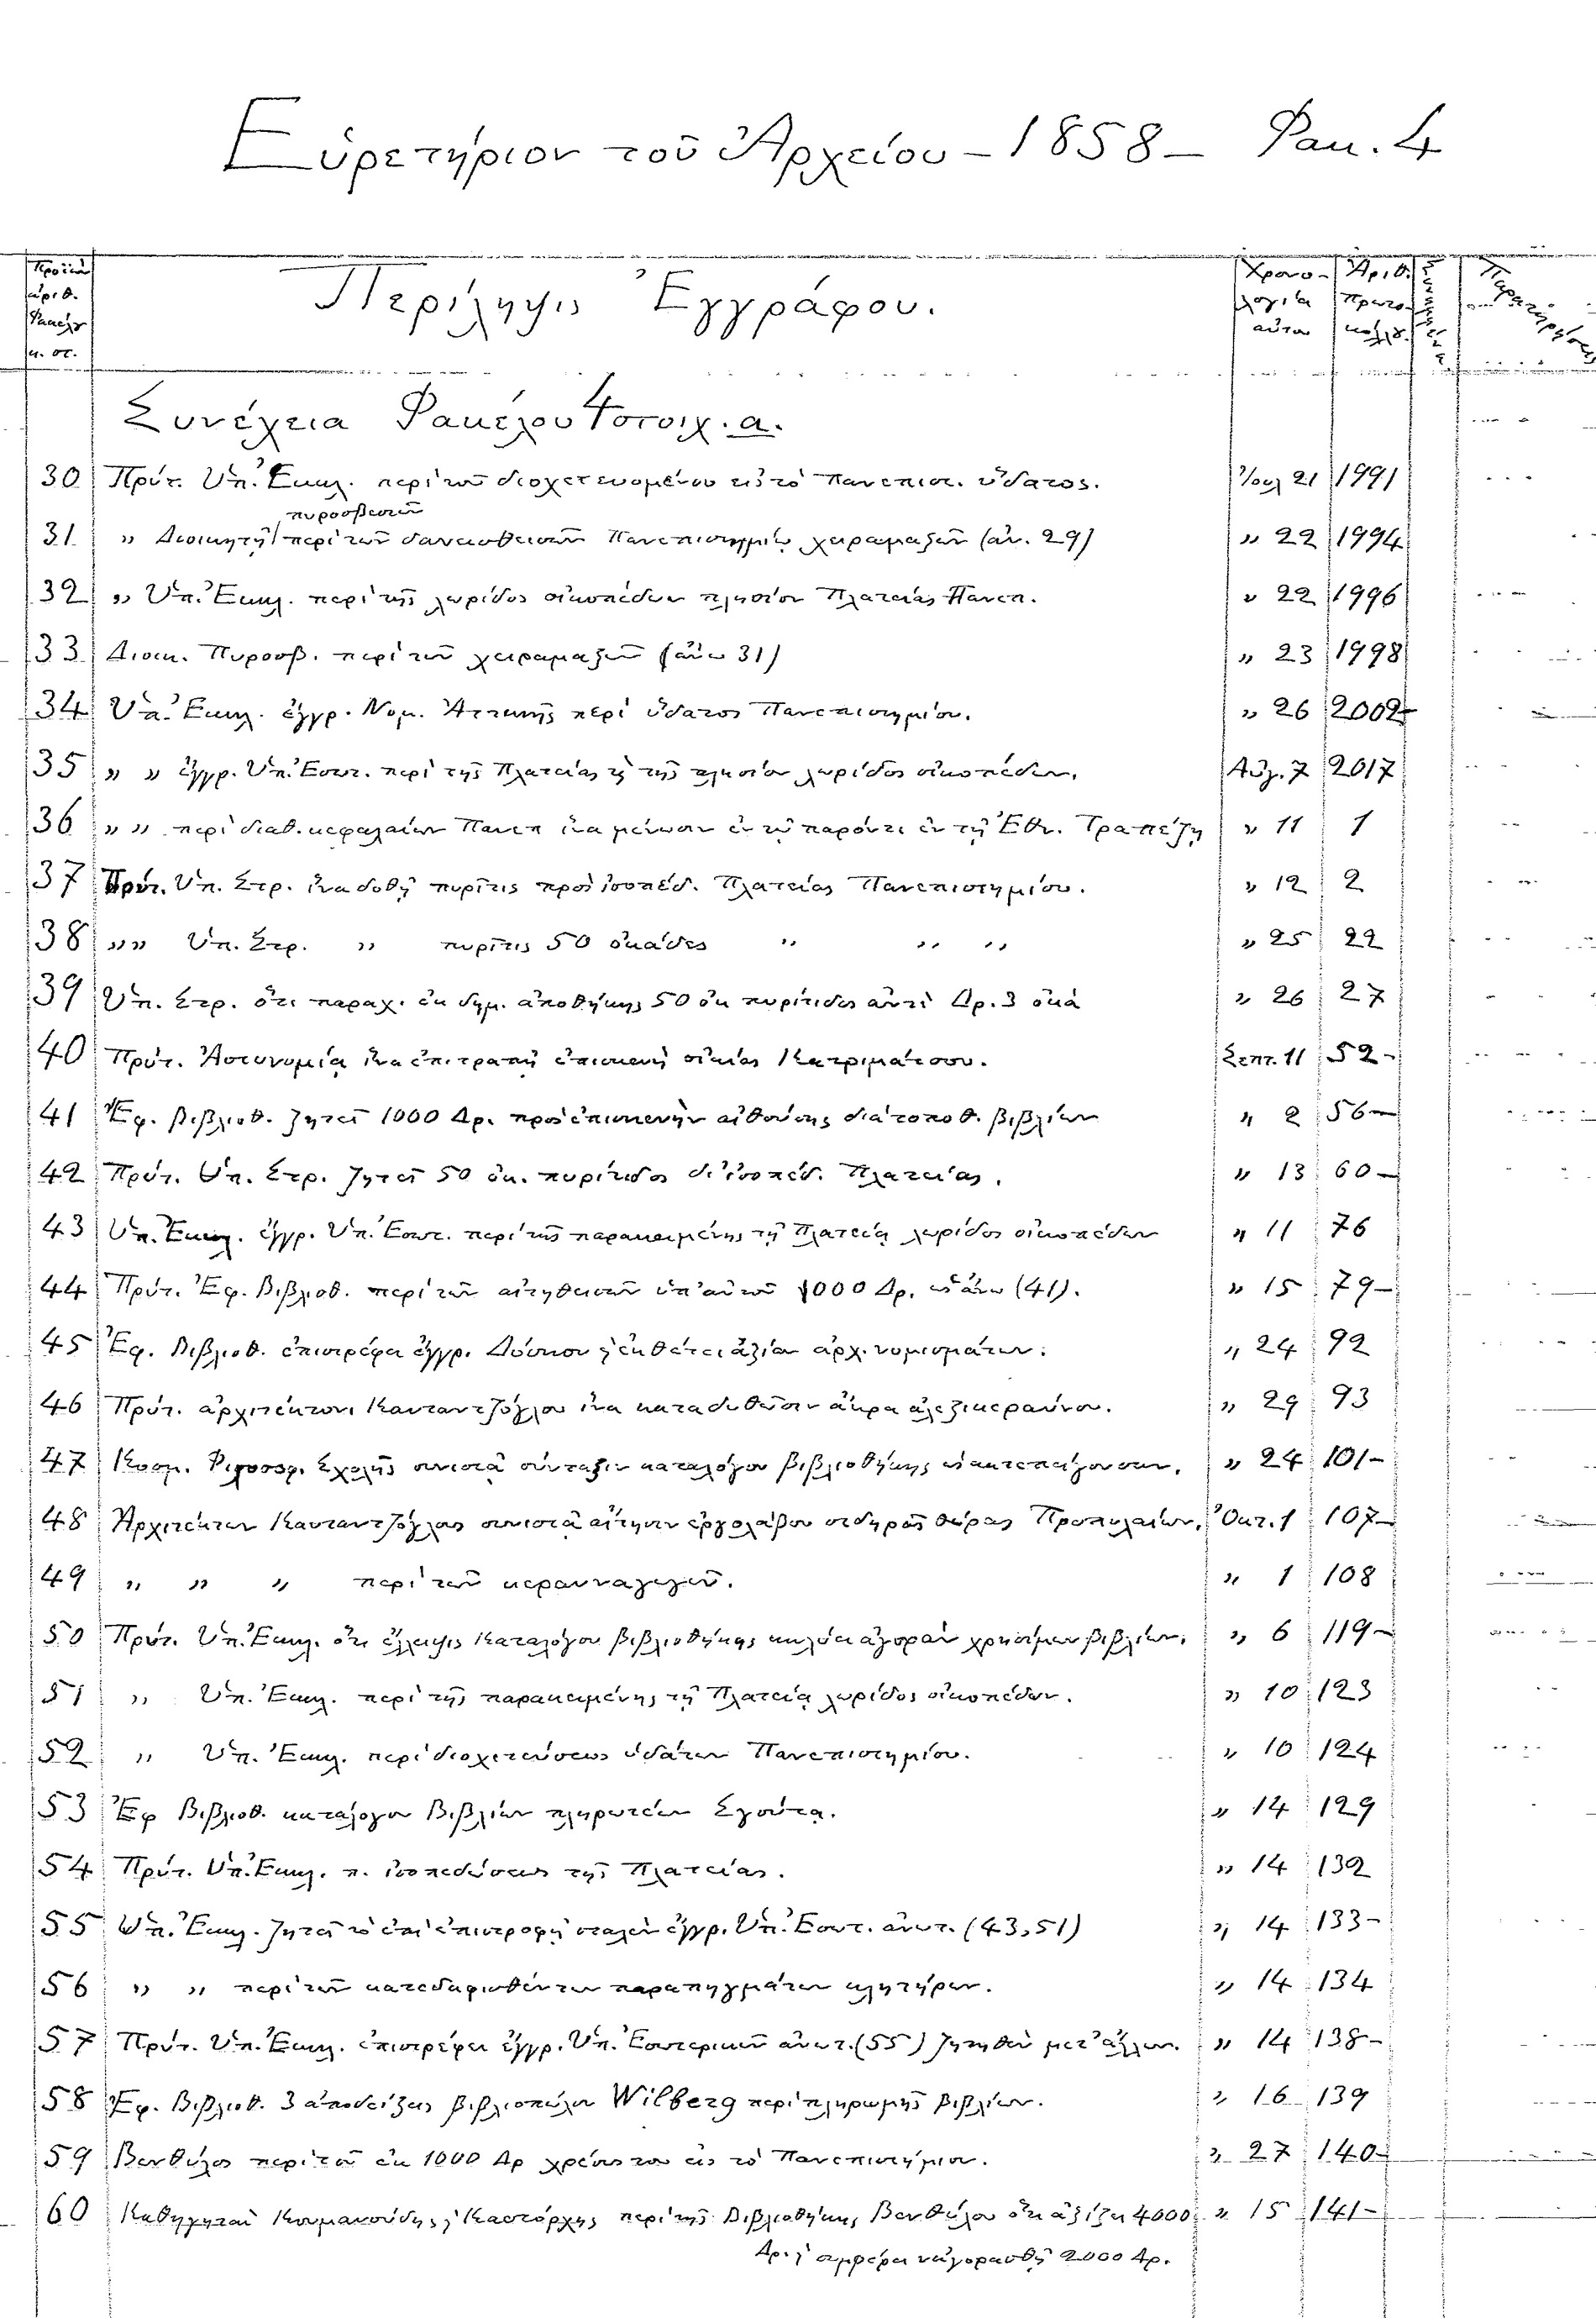 Εὑρετήριον τοῦ Ἀρχείου – 1858 – Φακ. 4
ἀριθ. Φακέλ. κ. στ.
Περίληψις Ἐγγράφου.
Χρονολογία αὐτοῦ
Ἀριθ. Πρωτοκόλλου
Συνέχεια Φακέλου 4 στοιχ. α.
30 Πρύτ. Ὑπ. Ἐκκλ. περὶ τοῦ διοχετευομένου εἰς τὸ Πανεπιστ. ὕδατος. Ἰουλ 21 1991
πυροσβεστῶν
31 " Διοικητῇ περὶ τῶν δανεισθεισῶν Πανεπιστημίῳ χειραμαξῶν (ἀν. 29) " 22 1994
32 " Ὑπ. Ἐκκλ. περὶ τῆς λωρίδος οἰκοπέδων πλησίον Πλατείας Πανεπ. " 22 1996
33 Διοικ. Πυροσβ. περὶ τῶν χειραμαξῶν (ἄνω 31) " 23 1998
34 Ὑπ. Ἐκκλ. ἐγγρ. Νομ. Ἀττικῆς περὶ ὕδατος Πανεπιστημίου. " 26 2002
35 " " ἐγγρ. Ὑπ. Ἐσωτ. περὶ τῆς Πλατείας ϗ τῆς πλησίον λωρίδος οἰκοπέδων. Αὐγ. 7 2017
36 " " περὶ διαθ. κεφαλαίων Πανεπ ἵνα μείνωσιν ἐν τῷ παρόντι ἐν τῇ Ἐθν. Τραπέζῃ " 11 1
37 Πρύτ. Ὑπ. Στρ. ἵνα δοθῇ πυρῖτις πρὸς ἰσοπέδ. Πλατείας Πανεπιστημίου. " 12 2
38 " " Ὑπ. Στρ. " πυρῖτις 50 ὀκάδες " " " " 25 22
39 Ὑπ. Στρ. ὅτι παραχ. ἐκ δημ. ἀποθήκης 50 ὀκ πυρίτιδος ἀντὶ Δρ. 3 ὀκᾶ " 26 27
40 Πρύτ. Ἀστυνομίᾳ ἵνα ἐπιτραπῇ ἐπισκευὴ οἰκίας Κατριμάτσου. Σεπτ. 11 52 –
41 Ἔφ. βιβλιοθ. ζητεῖ 1000 Δρ. πρὸς ἐπισκευὴν αἰθούσης διὰ τοποθ. βιβλίων " 2 56 –
42 Πρύτ. Ὑπ. Στρ. ζητεῖ 50 ὀκ. πυρίτιδος δι' ἰσοπέδ. Πλατείας. " 13 60 –
43 Ὑπ. Ἐκκλ. ἐγγρ. Ὑπ. Ἐσωτ. περὶ τῆς παρακειμένης τῇ Πλατείᾳ λωρίδος οἰκοπέδων " 11 76
44 Πρύτ. Ἐφ. Βιβλιοθ. περὶ τῶν αἰτηθεισῶν ὑπ' αὐτοῦ 1000 Δρ. ὡς ἄνω (41). " 15 79 –
45 Ἔφ. Βιβλιοθ. ἐπιστρέφει ἐγγρ. Δόσιου ϗ ἐκθέτει ἀξίαν ἀρχ. νομισμάτων. " 24 92
46 Πρύτ. ἀρχιτέκτονι Καυταντζόγλου ἵνα καταδυθῶσιν ἄκρα ἀλεξικεραύνου. " 29 93
47 Κοσμ. Φιλοσοφ. Σχολῆς συνιστᾷ σύνταξιν καταλόγου βιβλιοθήκης ὡς κατεπείγουσαν. " 24 101 –
48 Ἀρχιτέκτων Καυταντζόγλους συνιστᾷ αἴτησιν ἐργολάβου σιδηρᾶς θύρας Προπυλαίων. Ὀκτ. 1 107 –
49 " " " περὶ τῶν κεραυναγωγῶν. " 1 108
50 Πρύτ. Ὑπ. Ἐκκλ. ὅτι ἔλλειψις Καταλόγου βιβλιοθήκης κωλύει ἀγορὰν χρησίμων βιβλίων. " 6 119 –
51 " Ὑπ. Ἐκκλ. περὶ τῆς παρακειμένης τῇ Πλατείᾳ λωρίδος οἰκοπέδων. " 10 123
52 " Ὑπ. Ἐκκλ. περὶ διοχετεύσεως ὑδάτων Πανεπιστημίου. " 10 124
53 Ἔφ Βιβλιοθ. κατάλογον Βιβλίων πληρωτέων Σγούτα. " 14 129
54 Πρύτ. Ὑπ. Ἐκκλ. π. ἰσοπεδώσεως τῆς Πλατείας. " 14 132
55 Ὑπ. Ἐκκλ. ζητεῖ τὸ ἐπὶ ἐπιστροφῇ σταλὲν ἐγγρ. Ὑπ. Ἐσωτ. ἀνωτ. (43, 51) " 14 133 –
56 " " περὶ τῶν κατεδαφισθέντων παραπηγμάτων κλητήρων. " 14 134
57 Πρύτ. Ὑπ. Ἐκκλ. ἐπιστρέφει ἐγγρ. Ὑπ. Ἐσωτερικῶν ἀνωτ. (55) ζητηθὲν μετ' ἄλλων. " 14 138 –
58 Ἔφ. Βιβλιοθ. 3 ἀποδείξεις βιβλιοπώλου Wilberg περὶ πληρωμῆς βιβλίων. " 16 139
59 Βενθύλος περὶ τοῦ ἐκ 1000 Δρ χρέους του εἰς τὸ Πανεπιστήμιον. " 27 140 –
60 Καθηγηταὶ Κουμανούδης ϗ Καστόρχης περὶ τῆς Βιβλιοθήκης Βενθύλου ὅτι ἀξίζει 4000 " 15 141 –
Δρ. ϗ συμφέρει ν' ἀγορασθῇ 2000 Δρ.